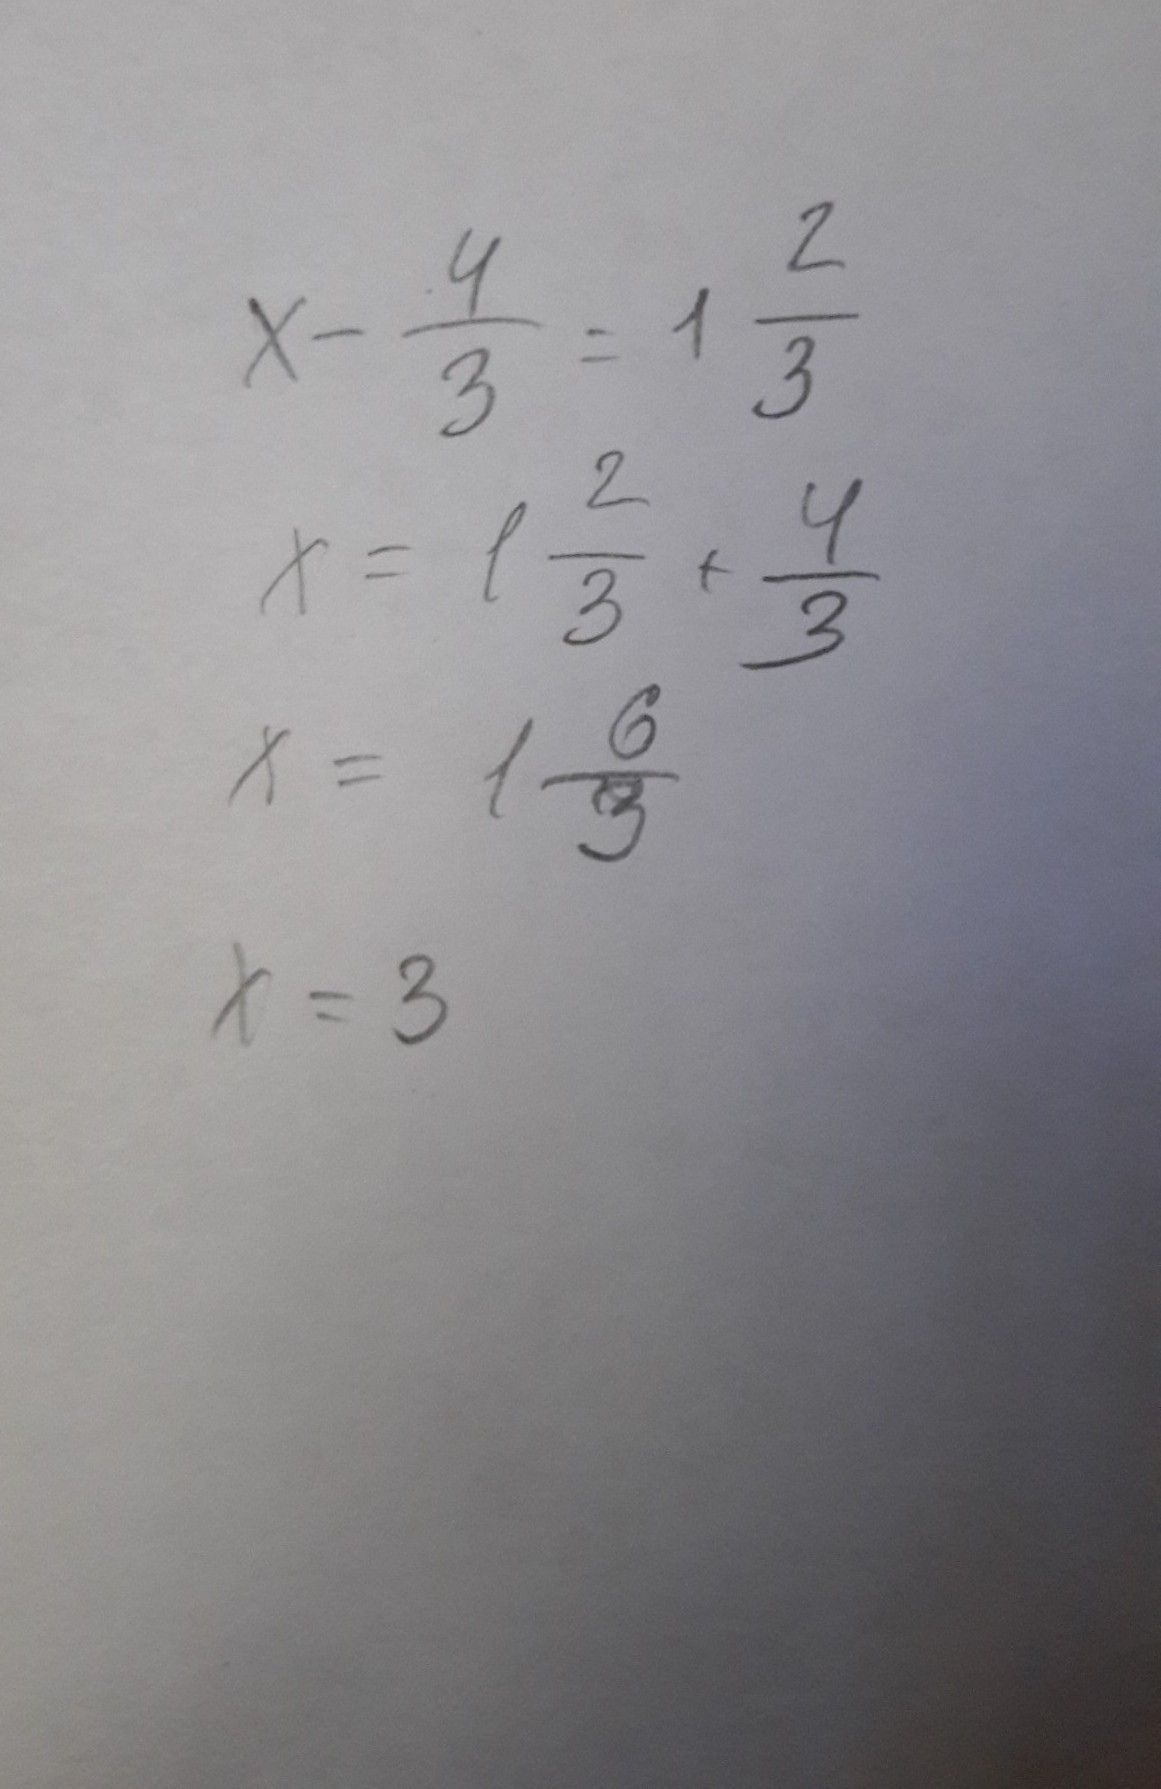 x - 4/3 = 1 2/3
x = 1 2/3 + 4/3
x = 1 6/3
x = 3